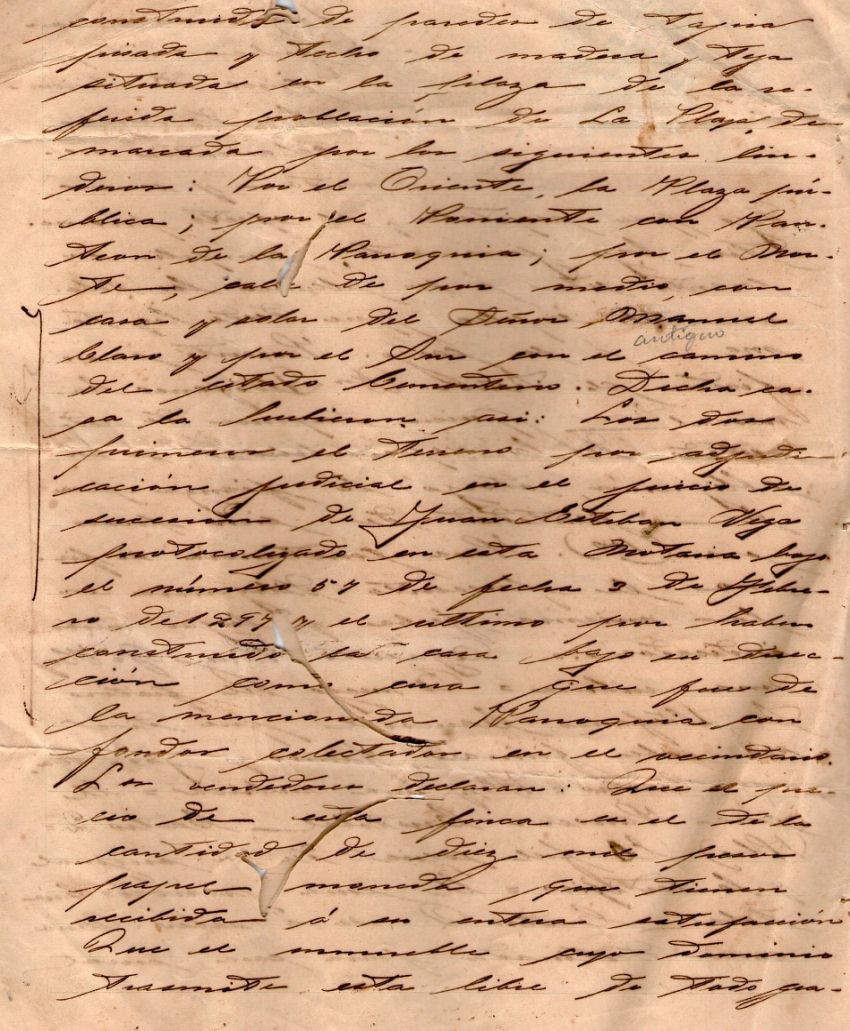 construida de paredes de tapia
pisada y techo de madera y teja
situada en la plaza de la re-
ferida población de La Playa, de-
marcada por los siguientes lin-
deros: Por el Oriente, la Plaza pú-
blica; por el Poniente con Pan-
teon de la Parroquia; por el Nor-
te, calle de por medio, con
casa y solar del Señor Manuel
Claro y por el Sur con el camino
antiguo
del citado Cementerio. Dicha ca-
sa la hubieron asi: Los dos
primeros el terreno por adjudi-
cación judicial en el juicio de
sucesión de Juan Esteban Vega
protocolizado en esta Notaria bajo
el número 57 de fecha 3 de Febre-
ro de y el ultimo por haber
construido la casa bajo su direc-
ción como cura que fue de
la mencionada Parroquia con
fondos colectados en el vecindario.
Los vendedores declaran: Que el pre-
cio de esta finca es el de la
cantidad de diez mil pesos
papel moneda que tienen
recibida á su entera satisfacción
Que el inmueble cuyo dominio
trasmite esta libre de todo gra-